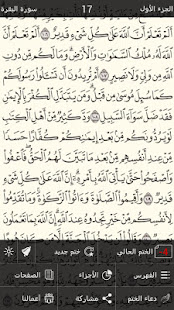 الجزء الأول 17 سورة البقرة
أَلَمْ تَعْلَمْ أَنَّ ٱللَّهَ عَلَىٰ كُلِّ شَىْءٍ قَدِيرٌ ١٠٦ أَلَمْ تَعْلَمْ
أَنَّ ٱللَّهَ لَهُۥ مُلْكُ ٱلسَّمَٰوَٰتِ وَٱلْأَرْضِۗ وَمَا لَكُم مِّن دُونِ
ٱللَّهِ مِن وَلِىٍّ وَلَا نَصِيرٍ ١٠٧ أَمْ تُرِيدُونَ أَن تَسْـَٔلُوا۟ رَسُولَكُمْ
كَمَا سُئِلَ مُوسَىٰ مِن قَبْلُۗ وَمَن يَتَبَدَّلِ ٱلْكُفْرَ بِٱلْإِيمَٰنِ
فَقَدْ ضَلَّ سَوَآءَ ٱلسَّبِيلِ ١٠٨ وَدَّ كَثِيرٌ مِّنْ أَهْلِ ٱلْكِتَٰبِ
لَوْ يَرُدُّونَكُم مِّنۢ بَعْدِ إِيمَٰنِكُمْ كُفَّارًا حَسَدًا مِّنْ عِندِ
أَنفُسِهِم مِّنۢ بَعْدِ مَا تَبَيَّنَ لَهُمُ ٱلْحَقُّۖ فَٱعْفُوا۟ وَٱصْفَحُوا۟
حَتَّىٰ يَأْتِىَ ٱللَّهُ بِأَمْرِهِۦٓۗ إِنَّ ٱللَّهَ عَلَىٰ كُلِّ شَىْءٍ قَدِيرٌ
١٠٩ وَأَقِيمُوا۟ ٱلصَّلَوٰةَ وَءَاتُوا۟ ٱلزَّكَوٰةَۚ وَمَا تُقَدِّمُوا۟
لِأَنفُسِكُم مِّنْ خَيْرٍ تَجِدُوهُ عِندَ ٱللَّهِۗ إِنَّ ٱللَّهَ بِمَا تَعْمَلُونَ
الختم الحالي ختم جديد
الفهرس الأجزاء الصفحات
دعاء الختم مشاركة أعمالنا